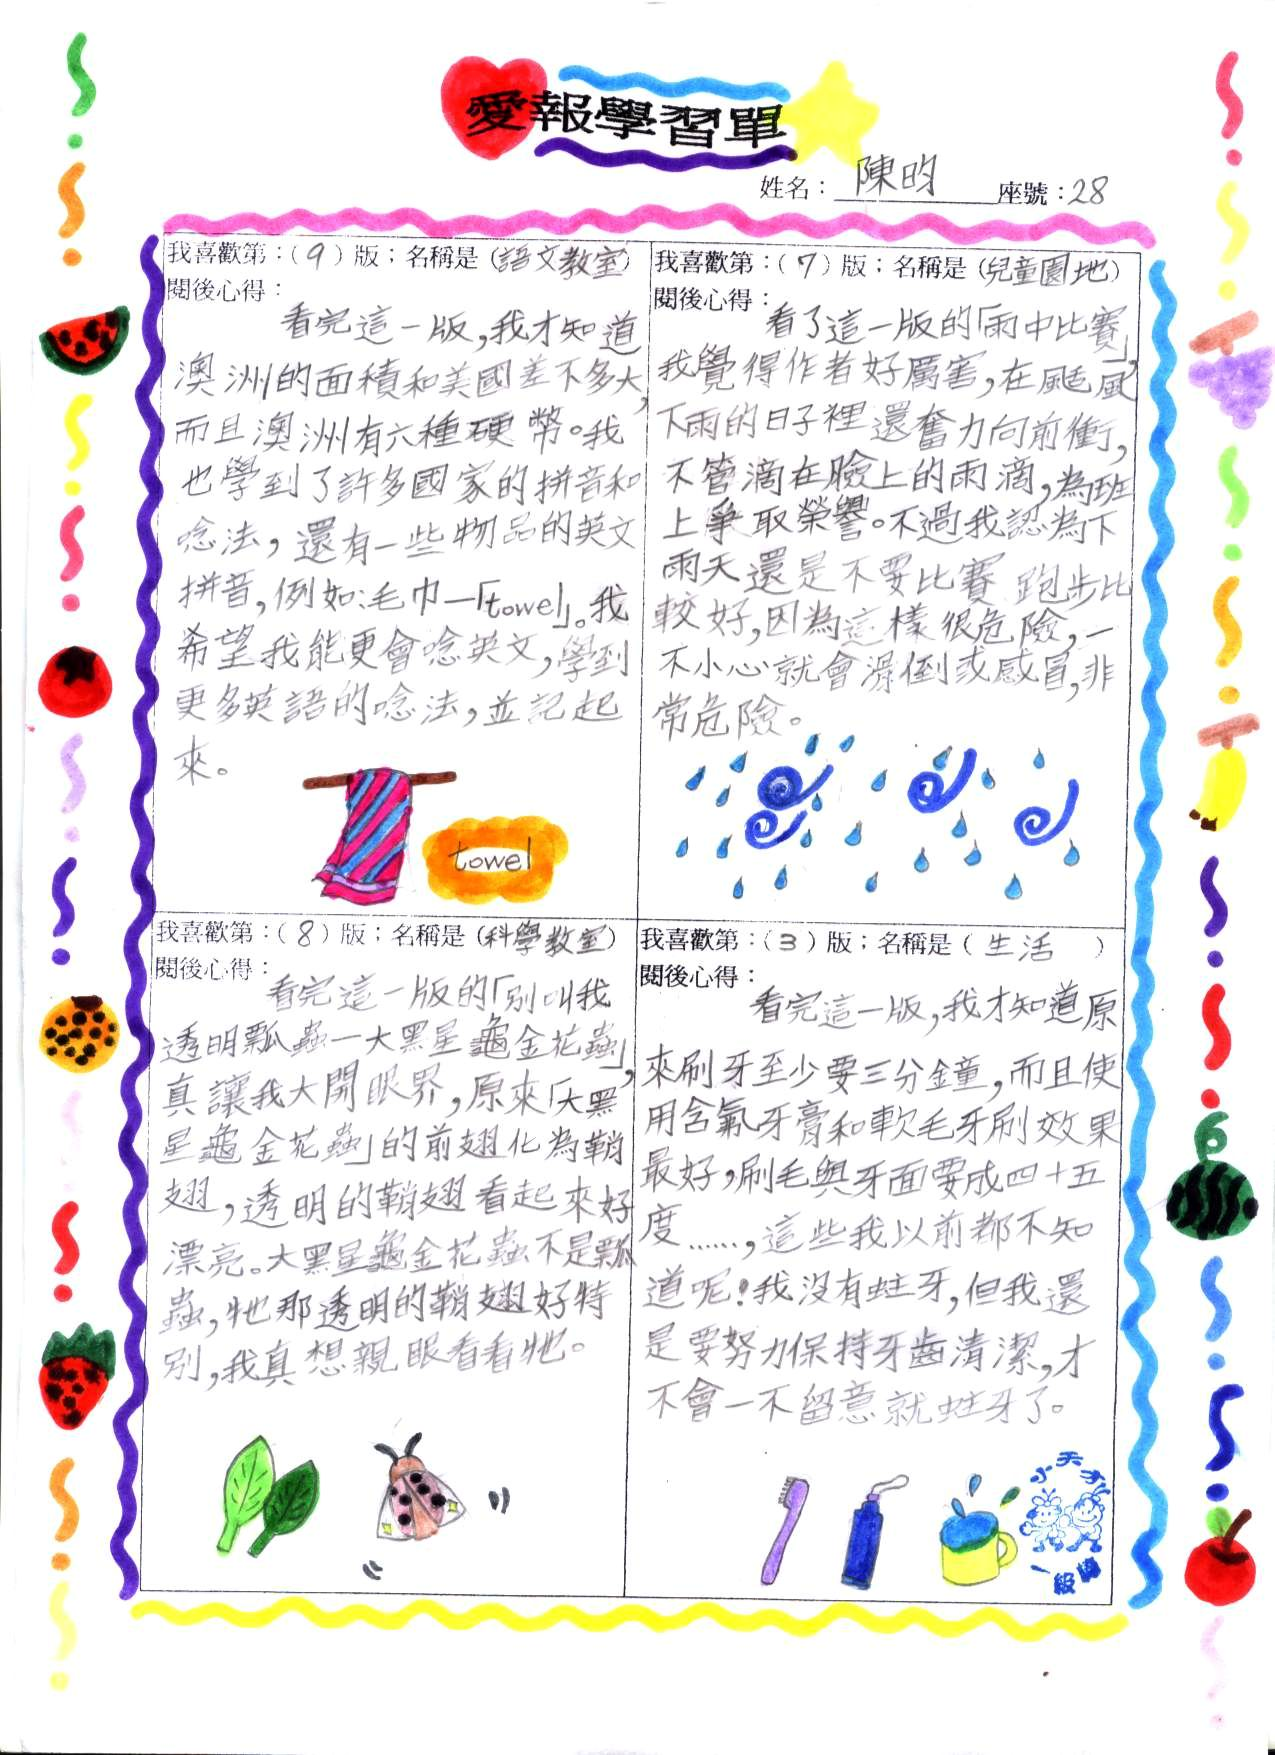 愛報學習單
姓名：陳昀 座號：28
我喜歡第：（9）版；名稱是（語文教室）
閱後心得：
看完這一版，我才知道
澳洲的面積和美國差不多大，
而且澳洲有六種硬幣。我
也學到了許多國家的拼音和
唸法，還有一些物品的英文
拼音，例如：毛巾—「towel」。我
希望我能更會唸英文，學到
更多英語的唸法，並記起
來。
towel
我喜歡第：（7）版；名稱是（兒童園地）
閱後心得：
看了這一版的「雨中比賽」，
我覺得作者好厲害，在颳風
下雨的日子裡還奮力向前衝，
不管滴在臉上的雨滴，為班
上爭取榮譽。不過我認為下
雨天還是不要比賽跑步比
較好，因為這樣很危險，一
不小心就會滑倒或感冒，非
常危險。
我喜歡第：（8）版；名稱是（科學教室）
閱後心得：
看完這一版的「別叫我
透明瓢蟲—大黑星龜金花蟲」，
真讓我大開眼界，原來「大黑
星龜金花蟲」的前翅化為鞘
翅，透明的鞘翅看起來好
漂亮。大黑星龜金花蟲不是瓢
蟲，牠那透明的鞘翅好特
別，我真想親眼看看牠。
我喜歡第：（3）版；名稱是（生活）
閱後心得：
看完這一版，我才知道原
來刷牙至少要三分鐘，而且使
用含氟牙膏和軟毛牙刷效果
最好，刷毛與牙面要成四十五
度……，這些我以前都不知
道呢！我沒有蛀牙，但我還
是要努力保持牙齒清潔，才
不會一不留意就蛀牙了。
小天才
一級棒